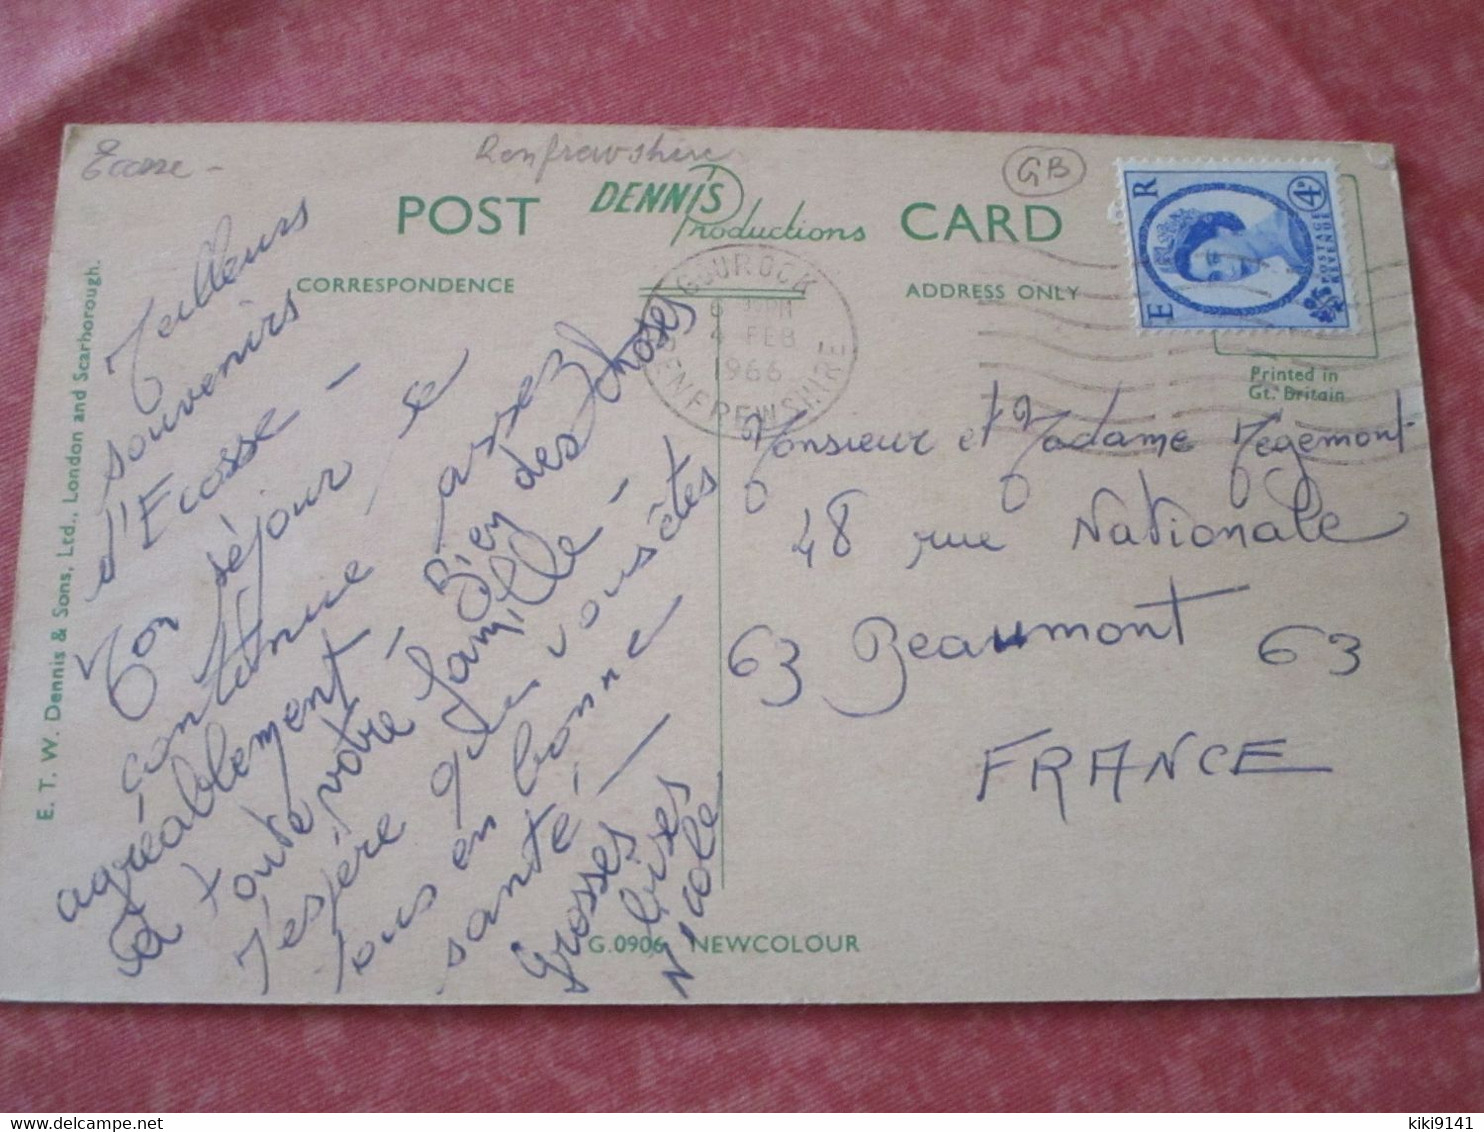 Ecosse -
Renfrewshire
GB
POST
DENNIS
Productions
CARD
CORRESPONDENCE
ADDRESS ONLY
E R
4D
POSTAGE
REVENUE
Printed in
Gt. Britain
GOUROCK
4 FEB
1966
RENFREWSHIRE
Meilleurs
souvenirs
d'Ecosse -
Mon séjour se
continue assez
agréablement - Bien des choses
à toute votre famille -
J'espère que vous êtes
tous en bonne
santé, -
Grosses
bises
Nicole
Monsieur et Madame Megemont
48 rue Nationale
63 Beaumont 63
FRANCE
E. T. W. Dennis & Sons, Ltd., London and Scarborough.
G.0906 NEWCOLOUR
delcampe.net
kiki9141